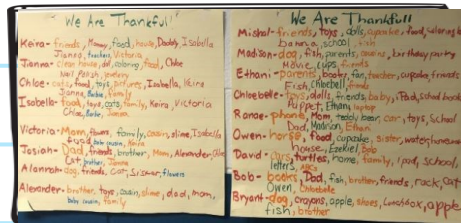 We Are Thankful!
Keira- friends, Mommy, food, house, Daddy, Isabella
Jianna, teachers, Victoria
Jianna- house, doll, coloring, food, Chloe
Nail Polish, jewelry
Chloe- cats, food, toys, pictures, Isabella, Keira
Jianna, Barbie, family
Isabella- food, toys, cats, family, Keira, Victoria
Chloe, Barbie, Jianna
Victoria- Mom, flowers, family, cousins, slime, Isabella
food, baby cousin, Keira
Josiah- Dad, friends, brother, Mom, Alexander, Chloe
Cat, brother, Jianna
Alannah- dog, friends, cat, flowers
Alexander- brother, toys, cousin, slime, dad, mom,
baby cousin, family
We Are Thankful!
Mishal- friends, toys, dolls, cupcake, food, coloring
banana, school, fish
Madison- dog, fish, parents, cousins, birthday party
Movie, cups, friends
Ethan- parents, fan, teacher, cupcake, friends
Fish, Chlobell, friends
Chloebelle- toys, dolls, friends, baby, iPad, school
Puppet, Ethan, laptop
Ranae- phone, Mom, teddy bear, car, toys, School
Dad, Madison, Ethan
Owen- horse, food, cupcake, sister, water,
house, Ezekiel, Bob
David- cars, turtles, home, family, ipad, school,
letters,
Bob- books, Dad, fish, brother, friends, rock, cat
Owen, Chloebelle
Bryant- dog, crayons, apple, shoes, lunchbox, apple
fish, brother